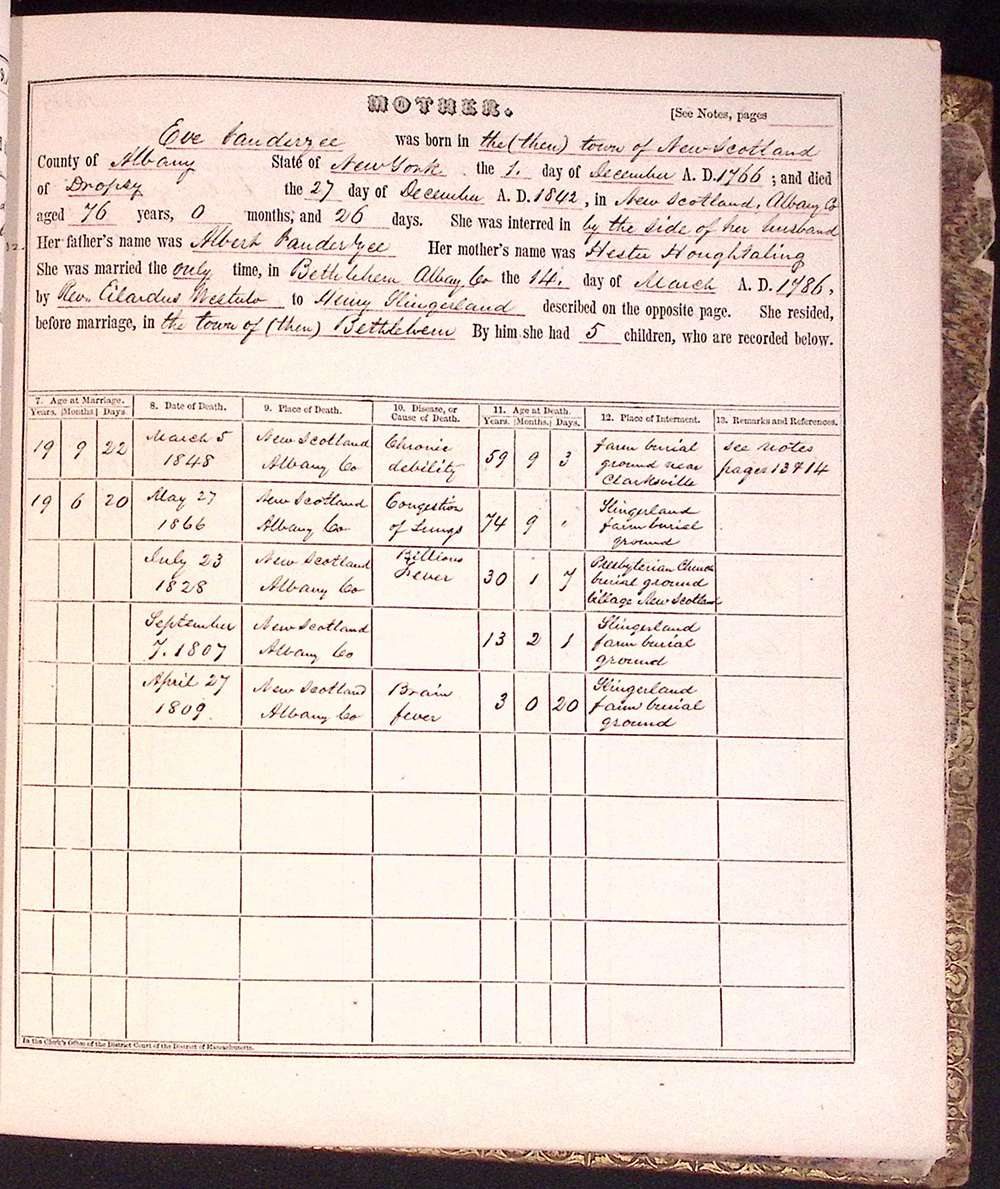 MOTHER.
[See Notes, pages
Eve Vanderzee was born in the (then) town of New Scotland
County of Albany State of New York the 1. day of December A. D. 1766; and died
of Dropsy the 27 day of December A. D. 1842, in New Scotland, Albany Co
aged 76 years, 0 months, and 26 days. She was interred in by the side of her husband
12.
Her father's name was Albert Vanderzee Her mother's name was Hester Houghtaling
She was married the only time, in Bethlehem Albay Co the 14. day of March A. D. 1786,
by Rev. Eilardus Westerlo to Henry Slingerland described on the opposite page. She resided,
before marriage, in the town of (then) Bethlehem By him she had 5 children, who are recorded below.
7. Age at Marriage. 8. Date of Death. 9. Place of Death. 10. Disease, or Cause of Death. 11. Age at Death. 12. Place of Interment. 13. Remarks and References.
Years. Months. Days. Years. Months. Days.
19 9 22 March 5 1848 New Scotland Albany Co Chronic debility 59 9 3 Farm burial ground near Clarksville see notes pages 13 & 14
19 6 20 May 27 1866 New Scotland Albany Co Congestion of Lungs 74 9 " Slingerland farm burial ground
July 23 1828 New Scotland Albany Co Billious Fever 30 1 7 Presbyterian Church burial ground village New Scotland
September 7. 1807 New Scotland Albany Co 13 2 1 Slingerland farm burial ground
April 27 1809. New Scotland Albany Co Brain fever 3 0 20 Slingerland farm burial ground
In the Clerk's Office of the District Court of the District of Massachusetts.